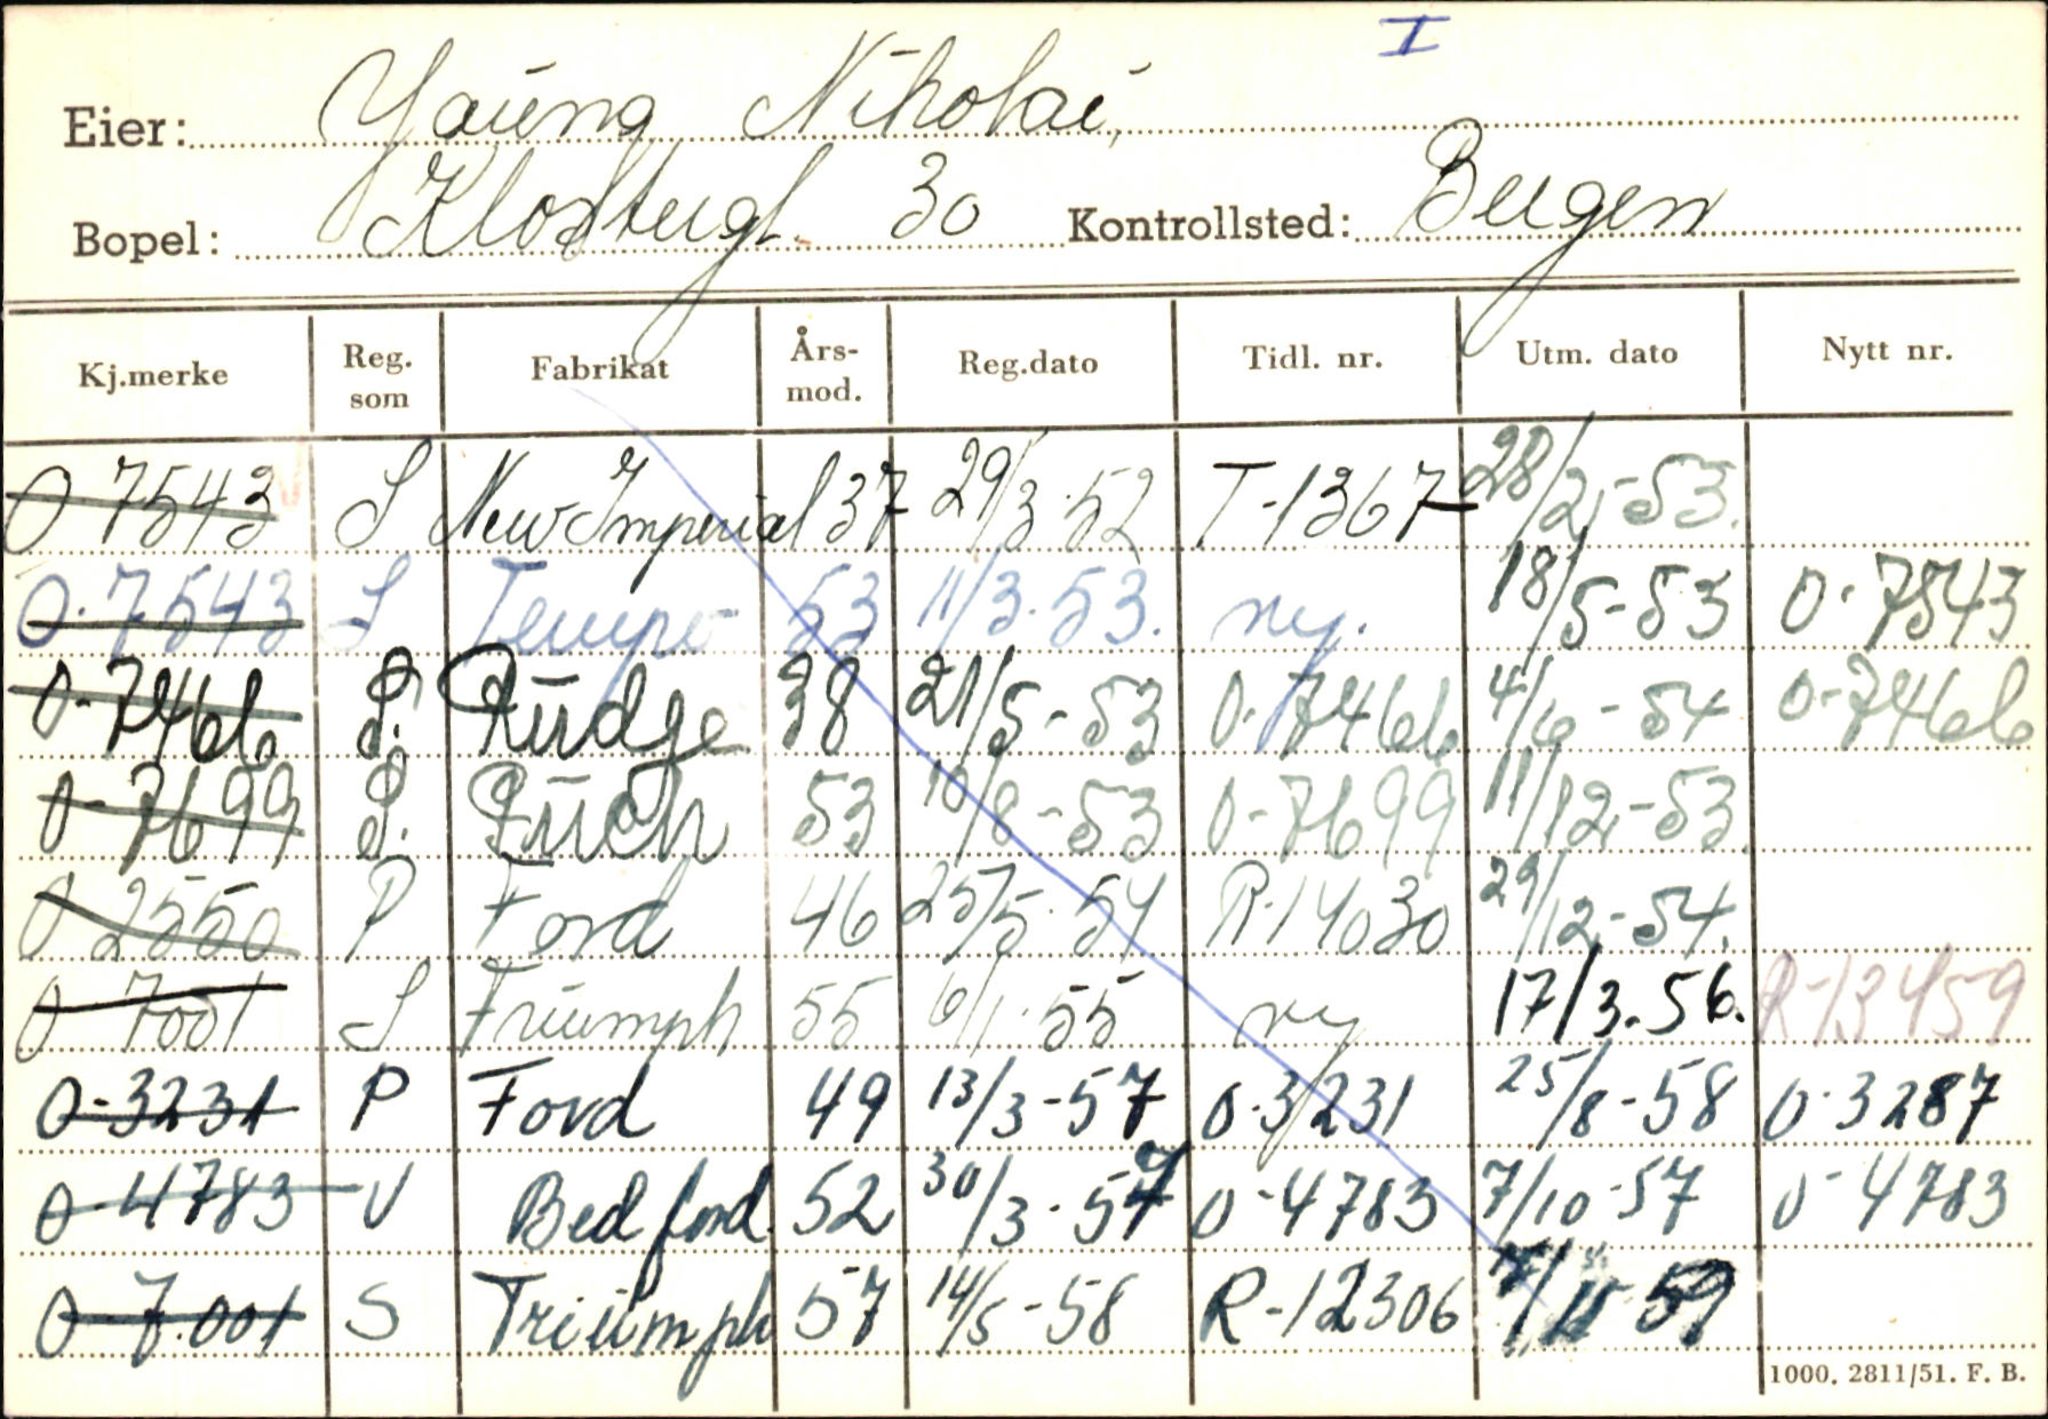 I
Eier: Young Nikolai,
Bopel: Klostergt. 30 Kontrollsted: Bergen
Kj.merke Reg. som Fabrikat Års-mod. Reg.dato Tidl. nr. Utm. dato Nytt nr.
O 7543 S New Imperial 37 29/3-52 T-1367 28/2-53.
O-7543 S Tempo 53 11/3-53. ny. 18/5-53 O-7543
O-7466 S. Rudge 38 21/5-53 O-7466 4/6-54 O-7466
O-7699 S. Puch 53 10/8-53 O-7699 11/12-53
O 2550 P Ford 46 25/5-54 R-14030 29/12-54.
O 7001 S Triumph 55 6/1-55 ny 17/3-56. R-13459
O-3231 P Ford 49 13/3-57 O-3231 25/8-58 O-3287
O-4783 V Bedford 52 30/3-57 O-4783 7/10-57 O-4783
O-7001 S Triumph 57 14/5-58 R-12306 59
1000. 2811/51. F. B.